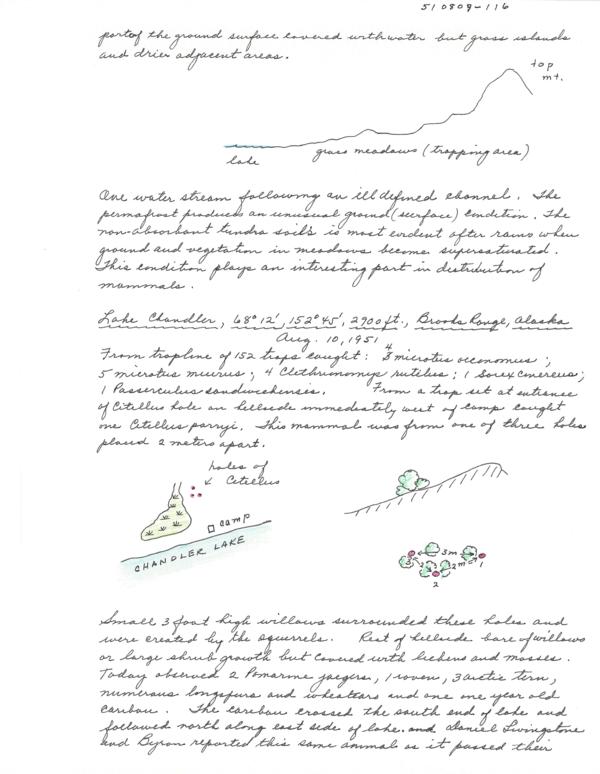 510809-116
part of the ground surface covered with water but grass islands
and drier adjacent areas.
top
mt.
lake
grass meadows (trapping area)
One water stream following an ill defined channel. The
permafrost produces an unusual ground (surface) condition. The
non-absorbant tundra soils is most evident after rains when
ground and vegetation in meadows become supersaturated.
This condition plays an interesting part in distribution of
mammals.
Lake Chandler, 68° 12', 152° 45', 2900 ft., Brooks Range, Alaska
Aug. 10, 1951
From trapline of 152 traps caught: 4 microtus oeconomus;
5 microtus miurus; 4 Clethrionomys rutilus; 1 Sorex cinereus;
1 Passerculus sandwichensis. From a trap set at entrance
of Citellus hole on hillside immediately west of camp caught
one Citellus parryi. This mammal was from one of three holes
placed 2 meters apart.
holes of
Citellus
camp
CHANDLER LAKE
3m
3
2m
1
2
Small 3 foot high willows surrounded these holes and
were created by the squirrels. Rest of hillside bare of willows
or large shrub growth but covered with lichens and mosses.
Today observed 2 Pomarine jaegers, 1 raven, 3 arctic tern,
numerous longspurs and wheatears and one one year old
caribou. The caribou crossed the south end of lake and
followed north along east side of lake. and Daniel Livingstone
and Byron reported this same animal as it passed their